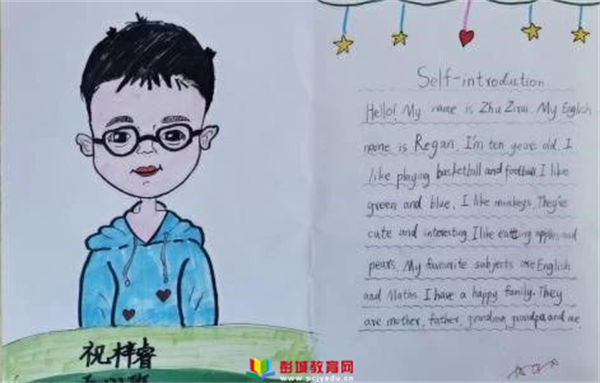 Self-introduction
Hello! My name is Zhu Zirui. My English
name is Regan. I'm ten years old. I
like playing basketball and football. I like
green and blue. I like monkeys. They're
cute and interesting. I like eating apples and
pears. My favourite subjects are English
and Maths. I have a happy family. They
are mother, father, grandma, grandpa and me.
祝梓睿
彭城教育网
www.pcjyedu.cn